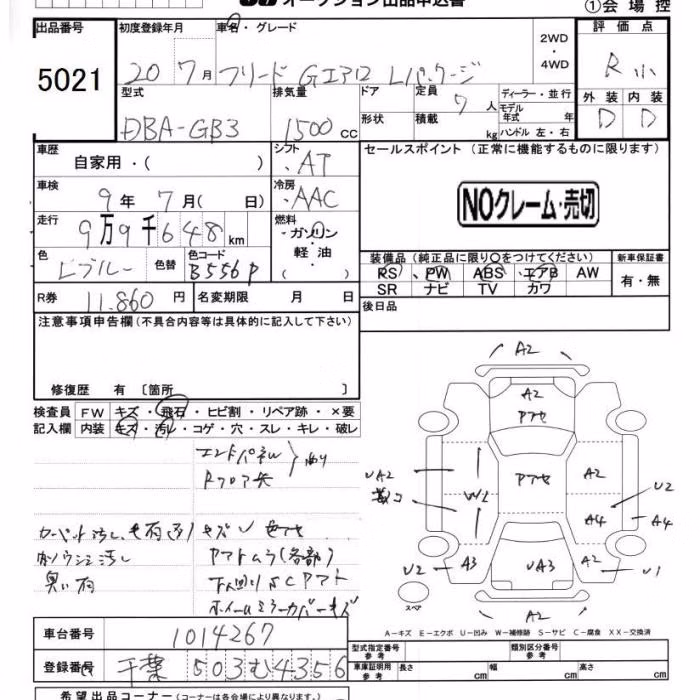 オークション出品申込書
①会場控
出品番号 5021
初度登録年月 20 7月
車名・グレード フリード Gエアロ Lパッケージ
2WD・4WD
評価点 R
外装 内装
D D
型式 DBA-GB3
排気量 1500 CC
ドア 形状
定員 7人
積載 kg
ディーラー・並行
モデル年式 年
ハンドル 左・右
車歴 自家用・( )
シフト AT
セールスポイント (正常に機能するものに限ります)
車検 9年 7月( 日)
冷房 AAC
NOクレーム・売切
走行 9万9千648km
燃料 ガソリン・軽油・( )
色 Lブルー 色替
色コード B556P
装備品 (純正品に限り○をつけてください)
新車保証書 有・無
RS PW ABS エアB AW
SR ナビ TV カワ
R券 11,860円
名変期限 月 日
後日品
注意事項申告欄 (不具合内容等は具体的に記入して下さい)
修復歴 有 〔箇所 〕
検査員記入欄
FW キズ・飛石・ヒビ割・リペア跡・×要
内装 キズ・汚れ・コゲ・穴・スレ・キレ・破レ
エンドパネル
Rフロア
アマトムラ(各部)
臭い有
A2
A2
アセ
アセ
A2
UA2
W2
U2
A4
A4
U2
A3
UA3
A2
U1
A2
スペア
A-キズ E-エクボ U-凹み W-補修跡 S-サビ C-腐食 XX-交換済
車台番号 1014267
登録番号 千葉 503 む 4356
型式指定番号 参考
類別区分番号 参考
車庫証明用 参考
長さ cm
幅 cm
高さ cm
希望出品コーナー (コーナーは各会場により異なります。)